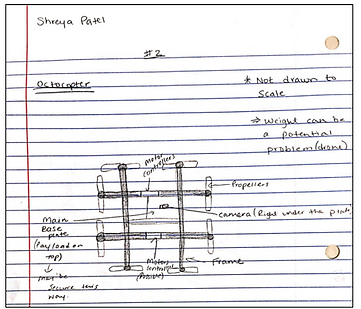 Shreya Patel
#2
Octocopter
* Not drawn to
Scale
⇒ Weight can be
a potential
problem (drone)
Motor
controllers
Propellers
camera (Right under the plate)
Main
Base
plate
(Payload on
top)
↓
maybe
secure this
way.
Motors
control
(Possible)
Frame